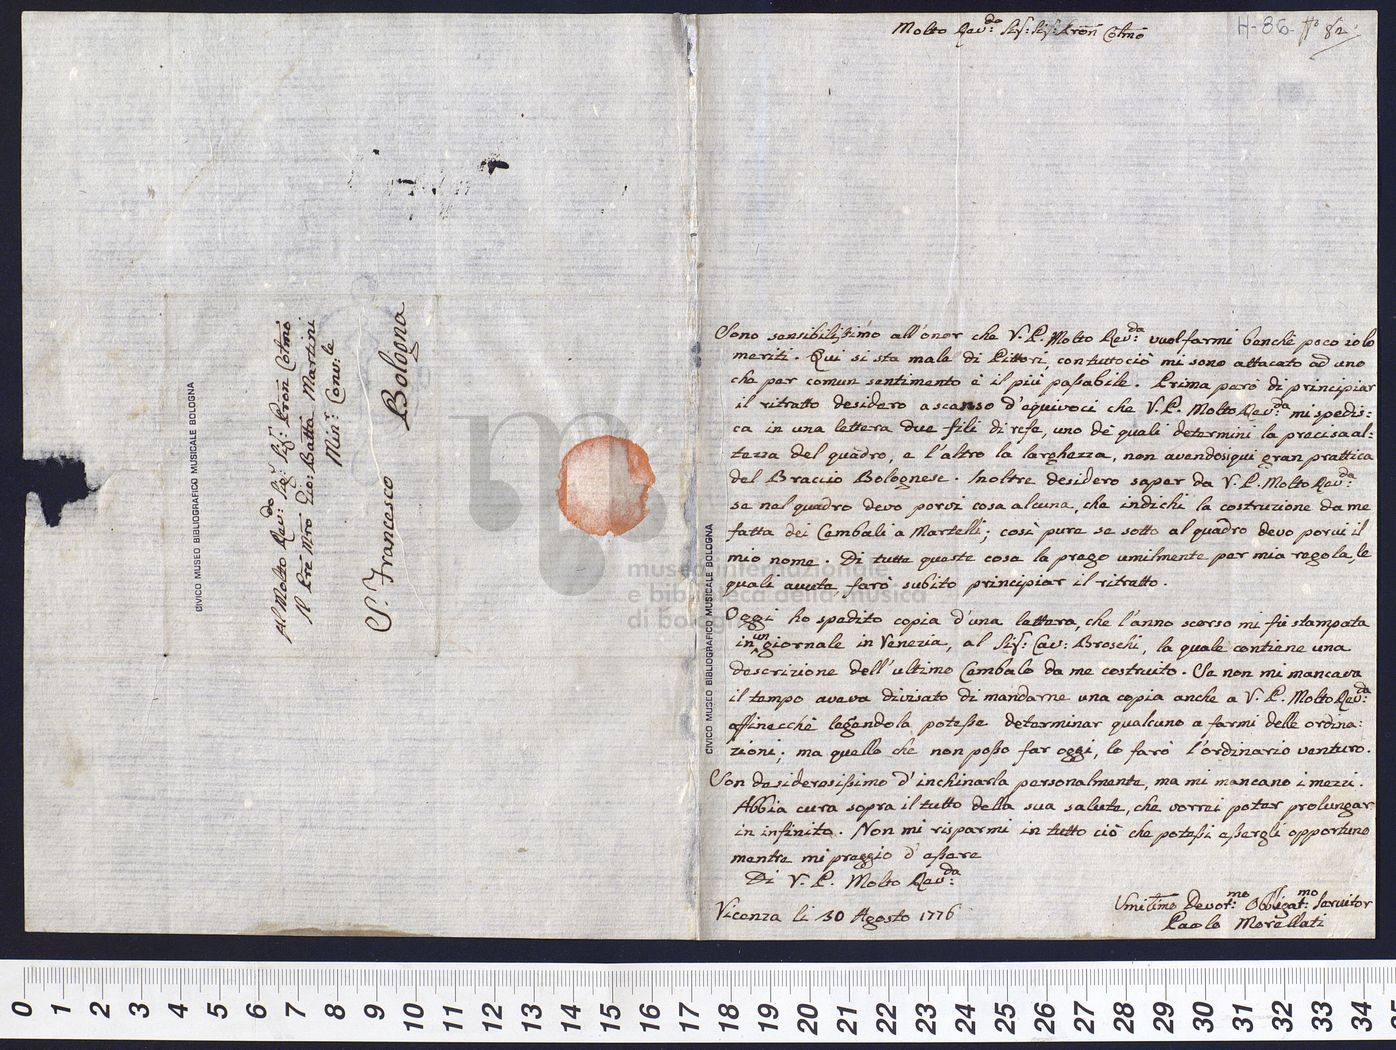 Molto Rev:da Sig: Sig: Pron Colmo
H-86- No 82
Sono sensibilissimo all'onor che V. P. Molto Rev:da vuol farmi benchè poco io lo
meriti. Qui si sta male di Pittori, contuttociò mi sono attacato ad uno
che per comun sentimento è il più passabile. Prima però di principiar
il ritratto desidero a scanso d'equivoci che V. P. Molto Rev:da mi spedis-
ca in una lettera due fili di refe, uno de quali determini la precisa al=
tezza del quadro, e l'altro la larghezza, non avendosi qui gran prattica
del Braccio Bolognese. Inoltre desidero saper da V. P. Molto Rev:da
se nel quadro devo porvi cosa alcuna, che indichi la costruzione da me
fatta dei Cembali a Martelli; così pure se sotto al quadro devo porvi il
mio nome. Di tutte queste cose la prego umilmente per mia regola, le
quali avute, farò subito principiar il ritratto.
Oggi ho spedito copia d'una lettera, che l'anno scorso mi fù stampata
in un giornale in Venezia, al Sig: Cav: Broschi, la quale contiene una
descrizione dell'ultimo Cembalo da me costruito. Se non mi mancava
il tempo aveva divisato di mandarne una copia anche a V. P. Molto Rev:da
affinecchè legendola potesse determinar qualcuno a farmi delle ordina:
zioni; ma quello che non posso far oggi, lo farò l'ordinario venturo.
Son desiderosissimo d'inchinarla personalmente, ma mi mancano i mezzi.
Abbia cura sopra il tutto della sua salute, che vorrei poter prolungar
in infinito. Non mi risparmi in tutto ciò che potessi essergli opportuno
mentre mi preggio d'essere
Di V. P. Molto Rev:da
Vicenza li 30 Agosto 1776
Umilimo Devot:mo Obbligat:mo Servitor
Paolo Morellati
Al Molto Rev:do Sig: Sig: Pron Colmo
Il Pre Mro Gio: Batta Martini
Min: Conv:le
S. Francesco
Bologna
CIVICO MUSEO BIBLIOGRAFICO MUSICALE BOLOGNA
CIVICO MUSEO BIBLIOGRAFICO MUSICALE BOLOGNA
museo internazionale
e biblioteca della musica
di bologna
0 1 2 3 4 5 6 7 8 9 10 11 12 13 14 15 16 17 18 19 20 21 22 23 24 25 26 27 28 29 30 31 32 33 34